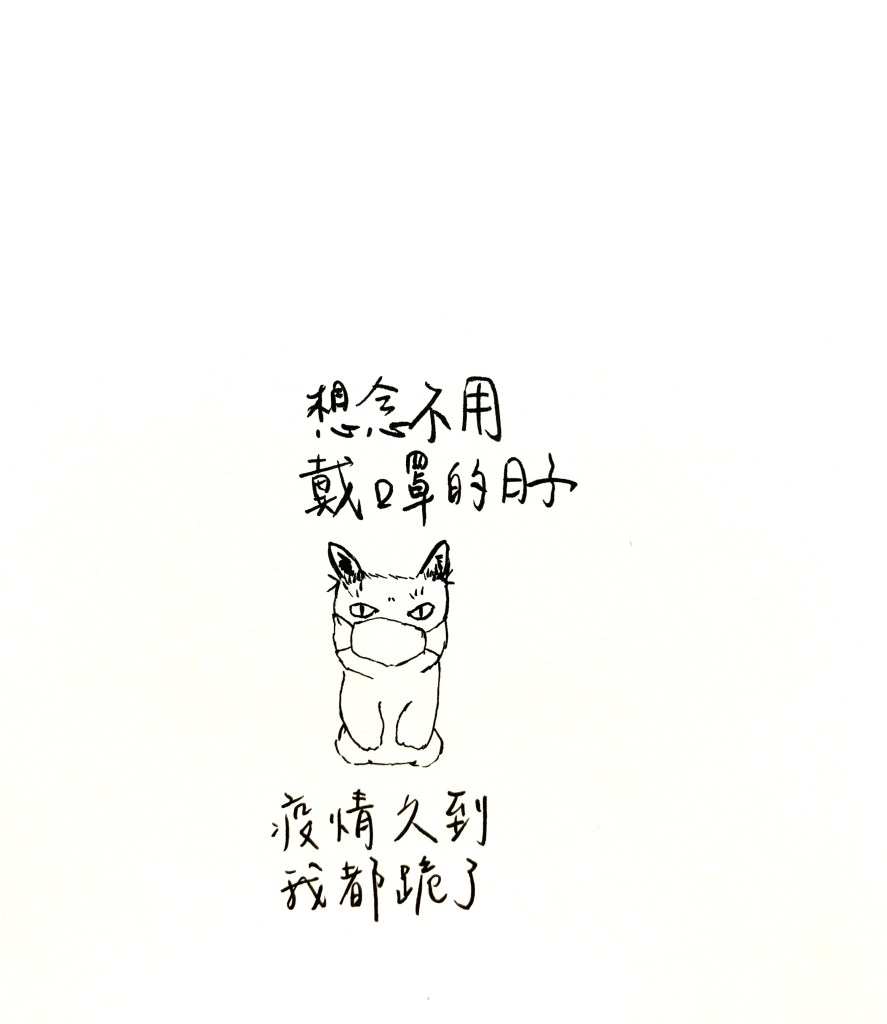 想念不用
戴口罩的日子
疫情久到
我都跪了